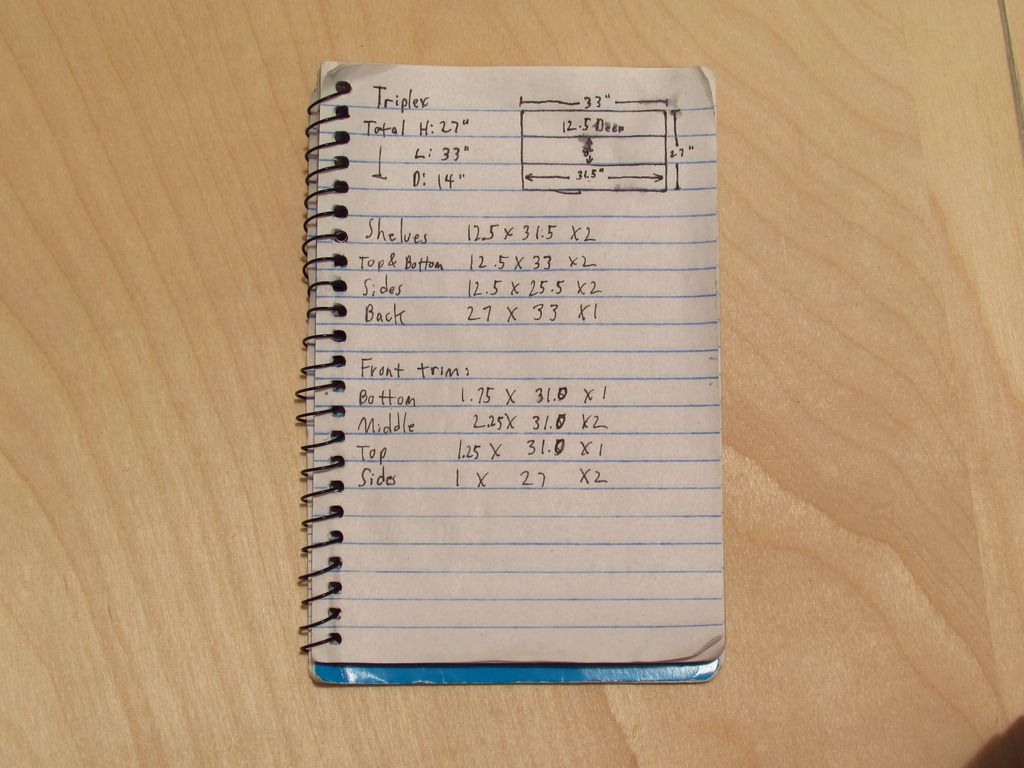 Triplex
Total H: 27"
L: 33"
D: 14"
33"
12.5 Deep
8"
27"
31.5"
Shelves 12.5 x 31.5 x2
Top & Bottom 12.5 x 33 x2
Sides 12.5 x 25.5 x2
Back 27 x 33 x1
Front trim:
Bottom 1.75 x 31.0 x1
Middle 2.25x 31.0 x2
Top 1.25 x 31.0 x1
Sides 1 x 27 x2